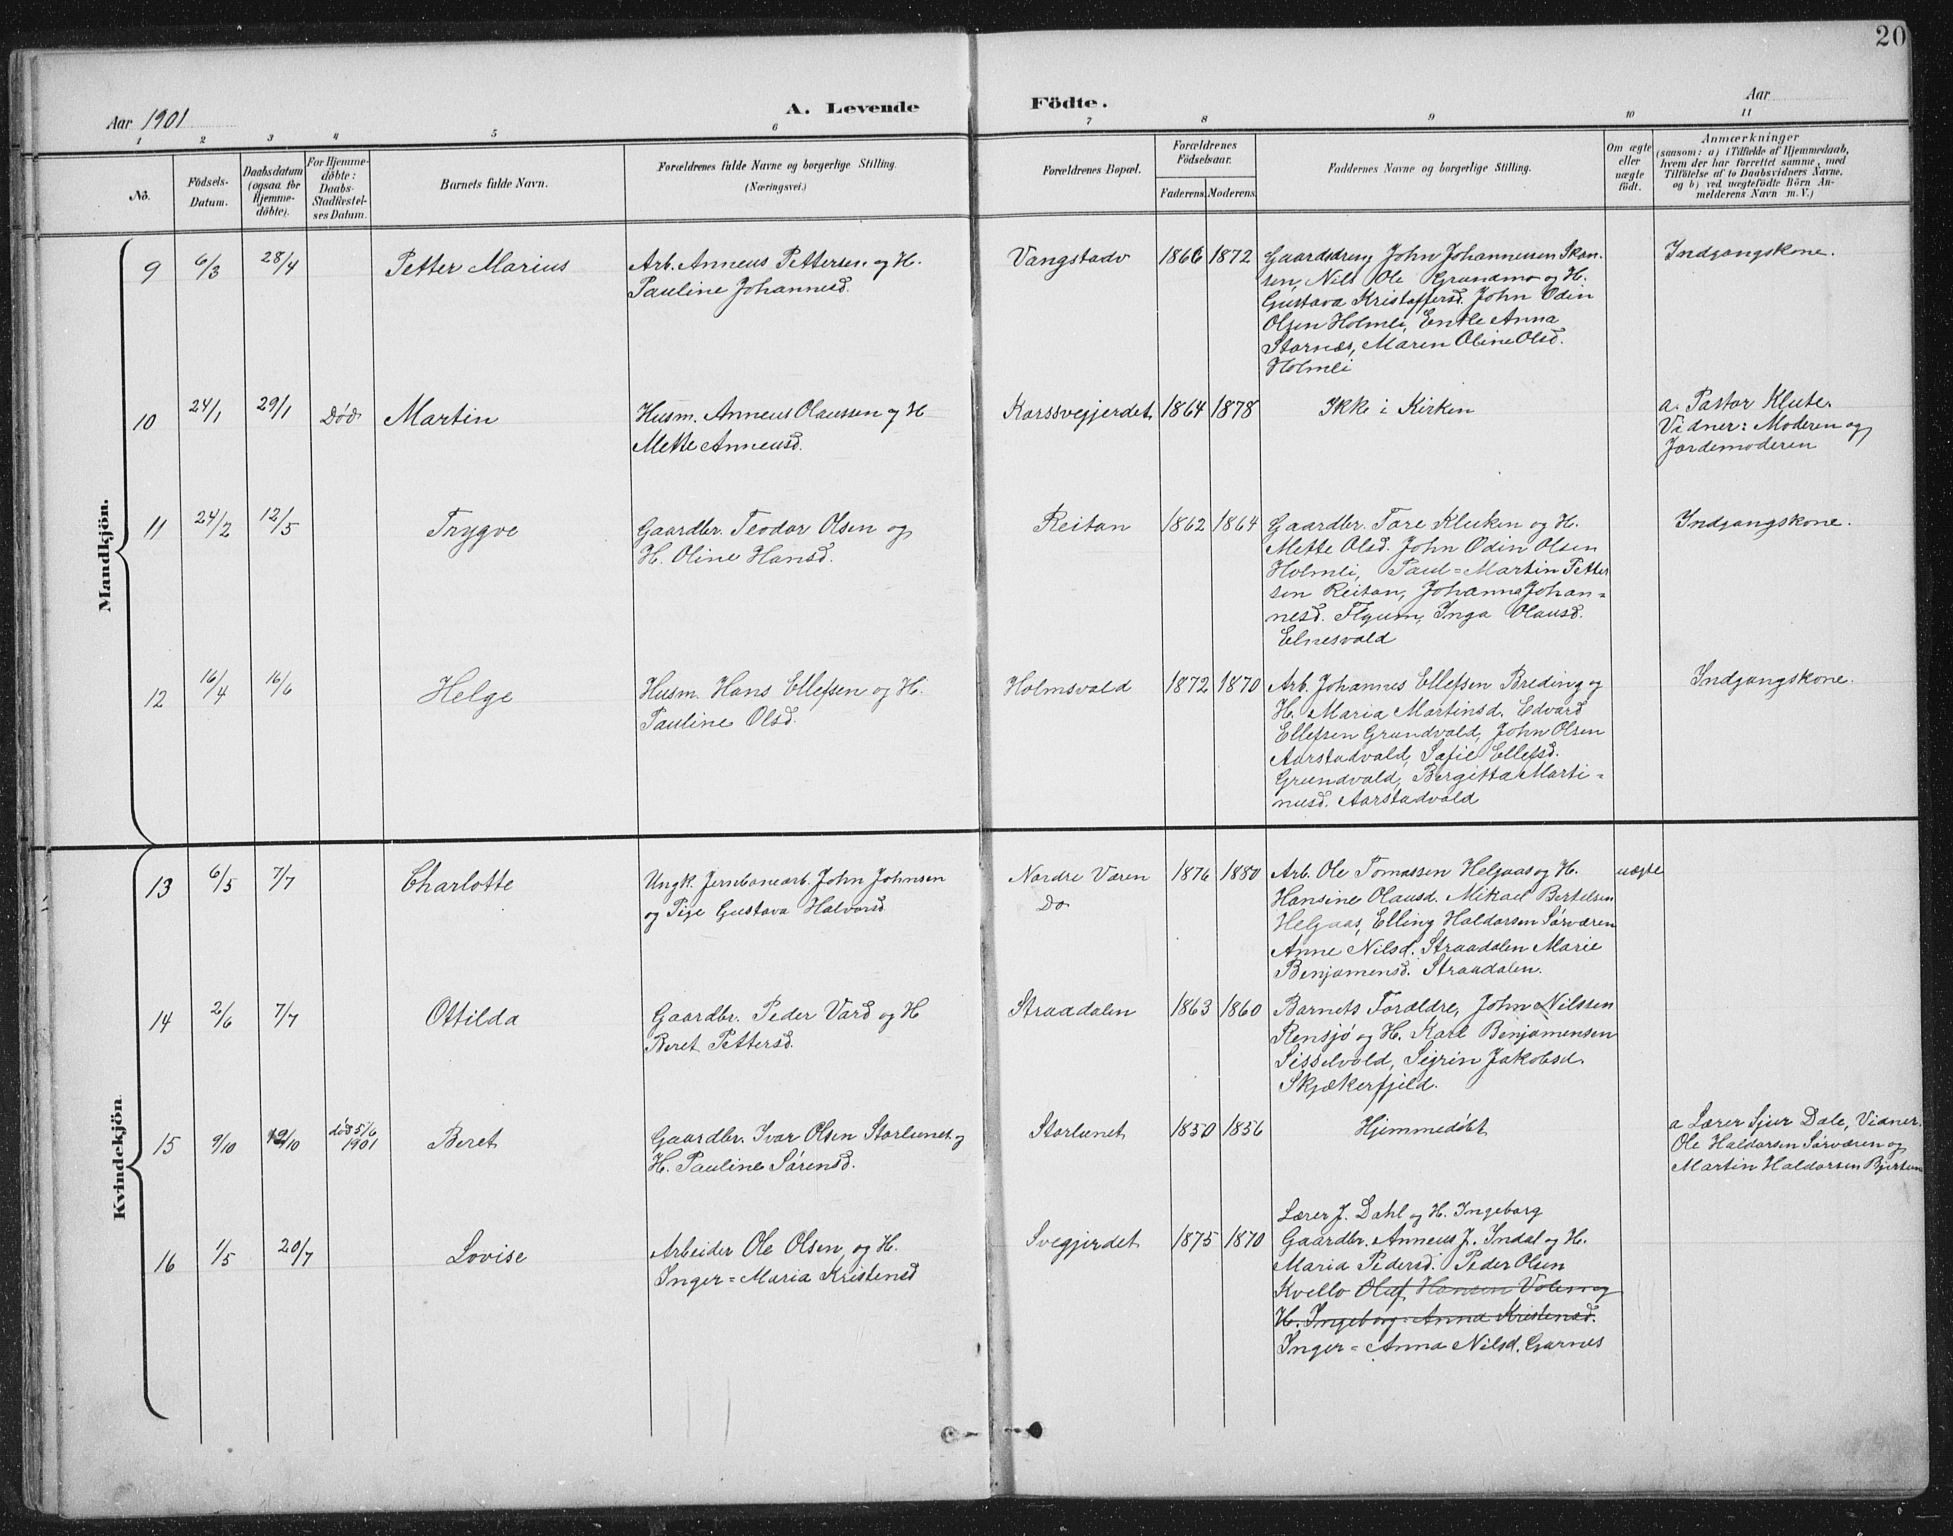 20
Aar 1901
A. Levende Födte.
Aar
1 2 3 4 5 6 7 8 9 10 11
No.
Födsels-
Datum.
Daabsdatum
(ogsaa for
Hjemme-
döbte).
For Hjemme-
döbte:
Daabs-
Stadfæstel-
ses Datum.
Barnets fulde Navn.
Forældrenes fulde Navne og borgerlige Stilling.
(Næringsvei.)
Forældrenes Bopæl.
Forældrenes
Födselsaar.
Faderens. Moderens.
Faddernes Navne og borgerlige Stilling.
Om ægte
eller
uægte
født.
Anmærkninger
(saasom: a) i Tilfælde af Hjemmedaab,
hvem der har forrettet samme, med
Tilföielse af to Daabsvidners Navne,
og b) ved uægtefödte Börn An-
melderens Navn m. V.)
Mandkjön.
9 6/3 28/4 Petter Marius
Arb. Anneus Pettersen og H.
Pauline Johannesd.
Vangstadv 1866 1872
Gaardsdreng John Johannessen Skan-
sen, Nils Ole Grundmo og H.
Gustava Kristoffersd. John Odin
Olsen Holmli, Enke Anna
Stornæs, Maren Oline Olsd.
Holmli
Indgangskone.
10 24/1 29/1 Død Martin
Husm. Anneus Olaussen og H
Mette Anneusd.
Korssvegjerdet 1864 1878
Ikke i Kirken
a. Pastor Klute.
Vidner: Moderen og
Jordemoderen
11 24/2 12/5 Trygve
Gaardbr. Teodor Olsen og
H. Oline Hansd.
Reitan 1862 1864
Gaardbr. Tore Kluken og H.
Mette Olsd. John Odin Olsen
Holmli, Paul-Martin Petter
sen Reitan, Johanna Johan-
nesd. Flyum, Inga Olausd.
Elnesvald
Indgangskone.
12 16/4 16/6 Helge
Husm. Hans Ellefsen og H.
Pauline Olsd.
Holmsvald 1872 1870
Arb. Johannes Ellefsen Breding og
H. Maria Martinsd. Edvard
Ellefsen Grundvald, John Olsen
Aarstadvald, Sofie Ellefsd.
Grundvald, Bergitta Marti-
nusd. Aarstadvald
Indgangskone.
Kvindekjön.
13 6/5 7/7 Charlotte
Ungk. Jernbanearb. John Johnsen
og Pige Gustava Halvorsd.
Nordre Væren
Do
1876 1880
Arb. Ole Tomassen Helgaas og H.
Hansine Olausd. Mikael Bertelsen
Helgaas, Elling Haldorsen Sørværen
Anne Nilsd. Straadalen Marie
Benjamensd. Straadalen.
uægte
14 2/6 7/7 Ottilda
Gaardbr. Peder Vard og H
Beret Pettersd.
Straadalen 1863 1860
Barnets Foræld­re, John Nilssen
Rensjø og H. Karl Benjamensen
Sisselvold, Sigrin Jakobsd.
Skjækerfjeld.
15 9/10 12/10 død 5/6
1901
Beret
Gaardbr. Ivar Olsen Storlunet og
H. Pauline Sørensd.
Storlunet 1850 1856
Hjemmedøbt
a Lærer Sjur Dale, Vidner.
Ole Haldorsen Sørværen og
Martin Haldorsen Bjertum
16 1/5 20/7 Lovise
Arbeider Ole Olsen og H.
Inger-Maria Kristensd
Svegjerdet 1875 1870
Lærer J. Dahl og H. Ingeborg
Gaardbr. Anneus J. Indal og H.
Maria Pedersd. Peder Olsen
Kvello Oluf Hansen Volen og
H. Ingeborg-Anna Kristensd.
Inger-Anna Nilsd. Garnes